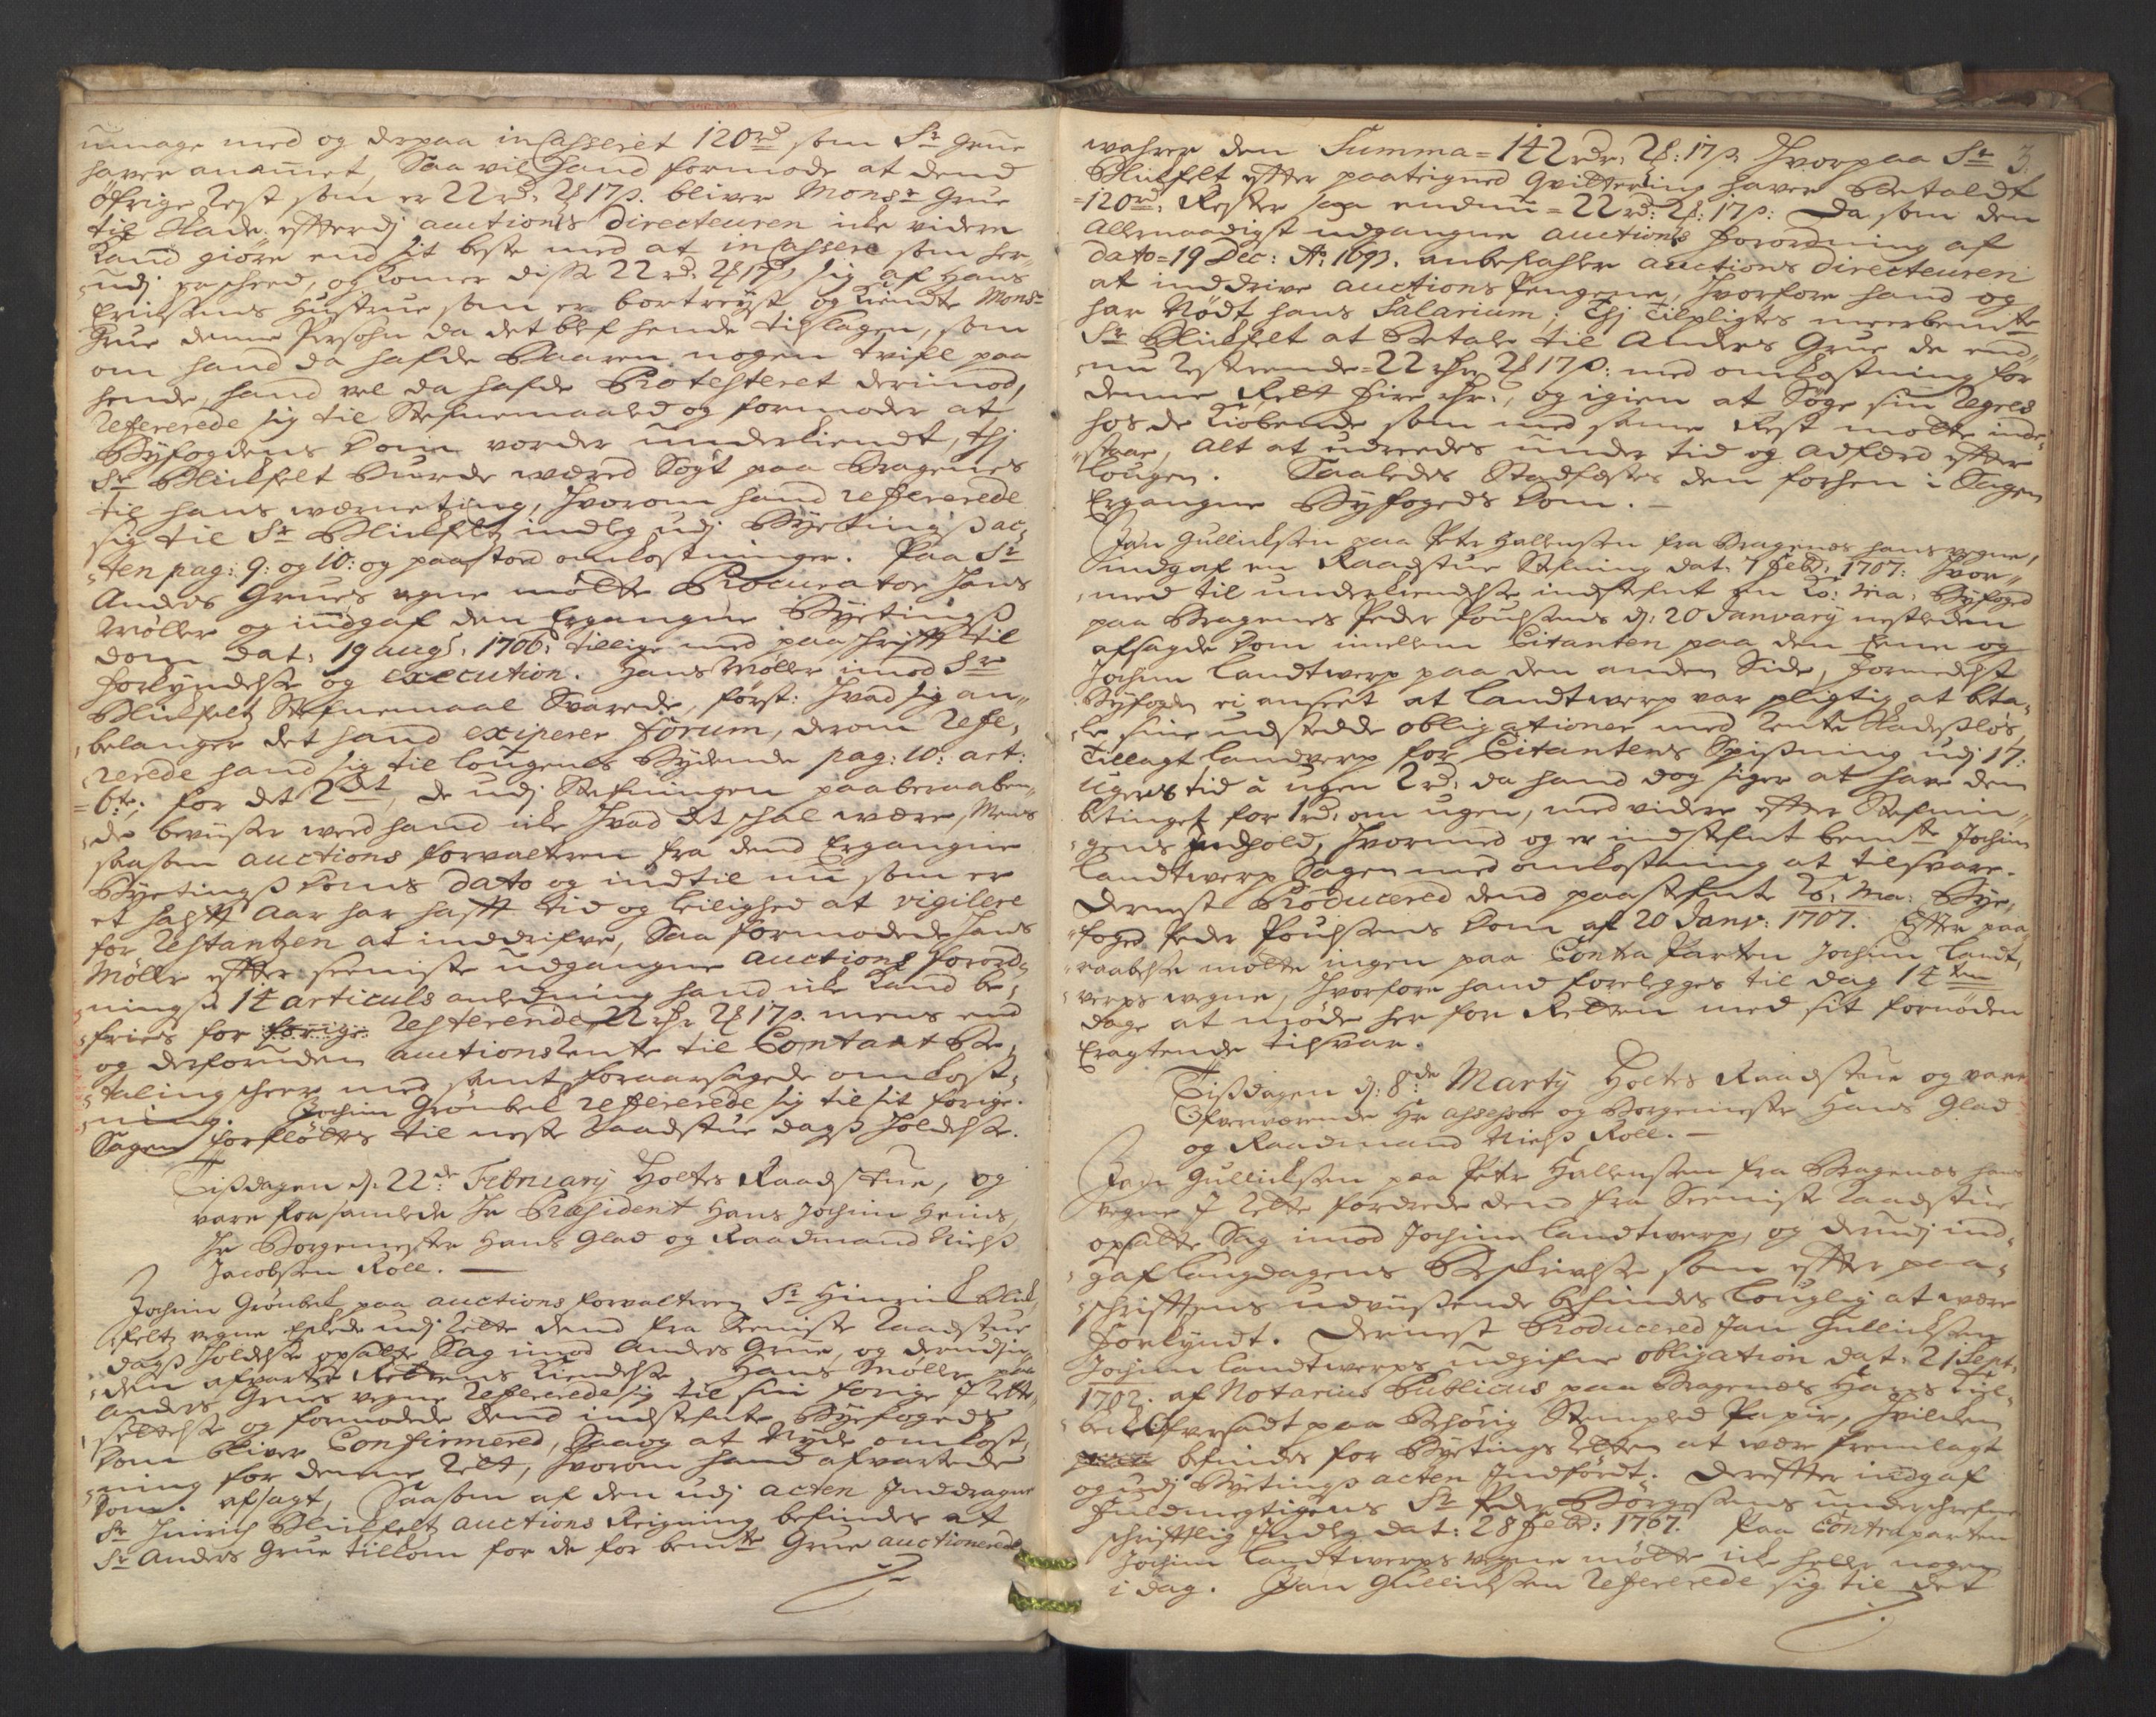 umage med og derpaa incasseret 120 rd som Sr Grue
hafver anammet, Saa vil hand formode at dend
öfrige Rest som er 22 rd. 2 ß 17 s. bliver Monsr Grue
til Skade efterdj auctions Directeuren icke videre
kand giöre end sit beste med at incassere som her¬
udj er scheed, og komer disse 22 rd. 2 ß 17 s. sig af Hans
Erichsens Hustrue som er bortreyst og kiendte Monsr
Grue denne Persohn da det blef hende tilslagen, som
om hand da hafde baaren nogen tvifl paa
hende, hand vel da hafde Protesteret derimod,
Refererede sig til Stefnemaalet og formoder at
Byfogdens Dom vorder underkiendt, thj
Sr Blickfelt burde wæred Sögt paa Bragenes
til hans werneting, hvorom hand refererede
sig til Sr Blickfeltz indleg udj Byetings ac¬
ten pag: 9: og 10: og paastod omkostninger. Paa Sr
Anders Grues vegne mötte Procurator Hans
Möller og indgaf den Ergangne Byetings
dom dat: 19 augs: 1706: tillige med paaschrifft til
forkyndelse og execution. Hans Möller imod Sr
Blickfeltz Stefnemaal Svarede, först: Hvad sig an¬
belanger det hand exiperer forum, derom Refe¬
rerede hand sig til Lougens Bydende pag: 10: art:
6te; for det 2det, de udj Stefningen paaberaaben¬
de beviiser weed hand icke hvad det schal wære, Mens
saasom auctions forvalteren fra dend Ergangne
Byetings Doms Dato og indtil nu som er
et halft Aar har hafft tid og leilighed at vigilere
for Restantzen at inddrifve, Saa formodede Hans
Möller effter seeniste udgangne auctions forord¬
nings 14 articuls anledning hand icke kand be¬
fries for forige Resterende 22 rdr 2 ß 17 s. mens end
og desforuden auctions rente til Contant Be¬
taling scheer med samt foraarsagede omkost¬
ning. Jochim Grönbek refererede sig til sit forige.
Sagen forflöttes til neste Raadstue dags holdelse.
Tisdagen d. 22de February Holtes Raadstue, og
vare forsamlede Hr Præsident Hans Jochim Heins,
Hr Borgemester Hans Glad og Raadmand Niels
Jacobsen Roll. —
Jochim Grönbek paa auctions forvalteren Sr Hinrich Blick¬
feltz vegne eskede udj Rette dend fra Seeniste Raadstue
dags holdelse opsatte Sag imod Anders Grue, og derudj
den afvarter Rettens kiendelse. Hans Möller paa
Anders Grues vegne refererede sig til sin forige J rette¬
settelse og formodede dend indstefnte Byefogeds
Dom bliver Confirmered, Saa og at Nyde omkost¬
ning for denne Rett, hvorom hand afvartede
Dom. afsagt, Saasom af den udj acten Jnddragne
Sr Hinrich Blickfeltz auctions Reigning befindes at
Sr Anders Grue tilkom for de for bemte Grue auctionerede
3.
wahrer den Summa = 142 rdr. 2 ß: 17 s. Hvorpaa Sr
Blickfelt effter paateigned Qvittering hafver Betaldt
= 120 rd. Rester saa endnu = 22 rd: 2 ß: 17 s: Da som den
Allernaadigst udgangne auctions Forordning af
Dato = 19 Dec: Ao: 1693. anbefahler auctions Directeuren
at inddrive auctions Pengene, hvorfore hand og
har Nödt hans Salarium; Thj tilpligtes meerbemte
Sr Blickfelt at Betale til Anders Grue de end¬
nu Resterende = 22 rdr 2 ß 17 s: med omkostning for
denne Rett fire rdr., og igien at Söge sin Regres
hos de kiöbende som med samme Rest motte inde¬
staae, Alt at udreedes under tid og Adferd effter
Lougen. Saaledes Stadfestes den forhen i Sagen
Ergangne Byfogeds Dom. —
Jan Gullichsen paa Peter Hallensen fra Bragenes hans vegne,
indgaf en Raadstue Stefning dat: 7 Febr: 1707: hvor¬
med til underkiendelse indstefnt en Ko: Ma: Byfoged
paa Bragenes Peder Poulsens d: 20 January nestleden
afsagde Dom imellem Citanten paa den Eene og
Jochim Landtwerp paa den anden Side, formedelst
Byfogden ei anseet at Landtwerp var pligtig at beta¬
le sine udstedde obligationer med Rente Skadeslös,
Tillagt Landtverp for Citantens Spisning udj 17.
Ugers tid à ugen 2 rd. da hand dog siger at have dem
betinget for 1 rd. om ugen, med videre effter Stefnin¬
gens Indhold, hvormed og er indstefnt bemte Jochim
Landtwerp Sagen med omkostning at tilsvare.
Dernest Producered dend paastefnte Ko: Ma: Bye¬
foged Peder Poulsens Dom af 20 Janv: 1707. Effter paa¬
raabelse mötte ingen paa Contra Parten Jochim Landt¬
verps vegne, hvorfore hand forelegges til dag 14ten
dage at möde her for Retten med sit fornöden
Eragtende tilsvar.
Tisdagen d: 8de Marty Holtes Raadstue og vare
Ofverværende Hr Assessor og Borgemester Hans Glad
og Raadmand Niels Roll. —
Jan Gullichsen paa Peter Hallensen fra Bragenes hans
vegne J Rette fordrede dend fra Seeniste Raadstue
opsatte Sag imod Jochim Landtwerp, og derudj ind¬
gaf laugdagens Beskrivelse som effter paa¬
schrifftens udviisende befindes louglig at være
forkyndt. Dernest Producered Jan Gullichsen
Jochim Landtwerps udgifne obligation dat: 21 Sept:
1702. af Notarius Publicus paa Bragenes Hans
Ofversadt paa Behörig Stempled Papir, hvilcken
befindes for Byetings Retten at være fremlagt
og udj Byetings acten Jndfördt. Dereffter indgaf
fuldmegtigens Sr Peder Börgesens underschrefne
schrifftlig Jndleg dat: 28 Febr: 1707. Paa Contraparten
Jochim Landtwerps vegne mötte icke heller nogen
i dag. Jan Gullichsen Refererede sig til det